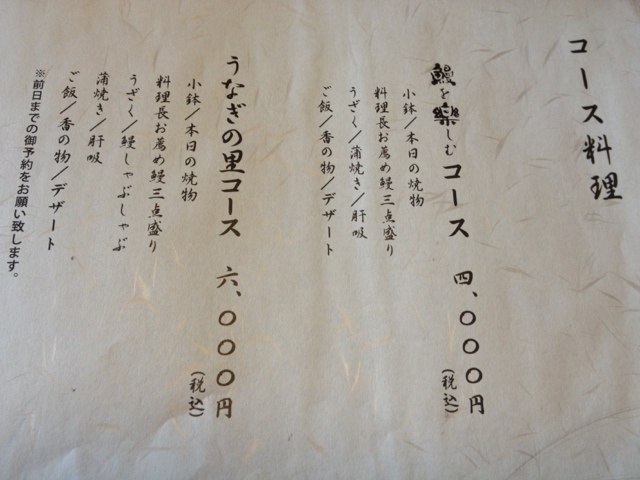 コース料理
鰻を楽しむコース 四、〇〇〇円
(税込)
小鉢/本日の焼物
料理長お薦め鰻三点盛り
うざく/蒲焼き/肝吸
ご飯/香の物/デザート
うなぎの里コース 六、〇〇〇円
(税込)
小鉢/本日の焼物
料理長お薦め鰻三点盛り
うざく/鰻しゃぶしゃぶ
蒲焼き/肝吸
ご飯/香の物/デザート
※前日までの御予約をお願い致します。